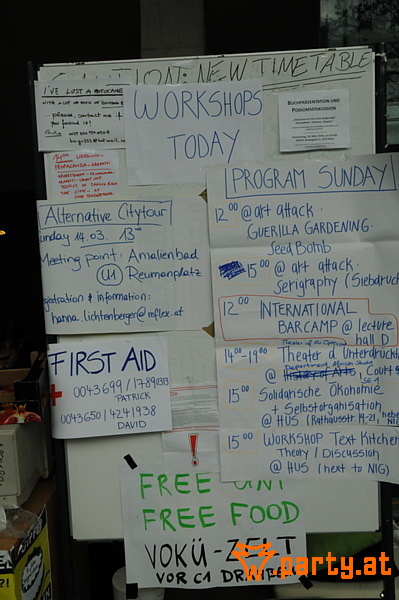 CAUTION: NEW TIMETABLE
I'VE LOST A
please, contact me if
you found it!
WORKSHOPS
TODAY
BUCHPRÄSENTATION UND
PODIUMSDISKUSSION
Alternative Citytour
unday 14.03. 13⁰⁰
Meeting point: Amalienbad
U1 Reumannplatz
gistration & information:
hanna.lichtenberger@reflex.at
PROGRAM SUNDAY
12⁰⁰ @ art attack.
GUERILLA GARDENING.
Seed Bomb
15⁰⁰ @ art attack.
Serigraphy (Siebdruc
12⁰⁰ INTERNATIONAL
BARCAMP @ lecture
hall D
Theater of the Oppress
14⁰⁰-19⁰⁰ Theater d Unterdrückt
Department African Study
@ History of Arts, Court 5
SE1
15⁰⁰ Solidarische Ökonomie
+ Selbstorganisation
@ HUS (Rathausstr. 19-21, nebe
NIG)
15⁰⁰ WORKSHOP Text Kitchen
Theory / Discussion
@ HUS (next to NIG)
FIRST AID
PATRICK
0043650/4241938
DAVID
!
FREE UNI
FREE FOOD
VOKÜ-ZELT
VOR C1
party.at
?!